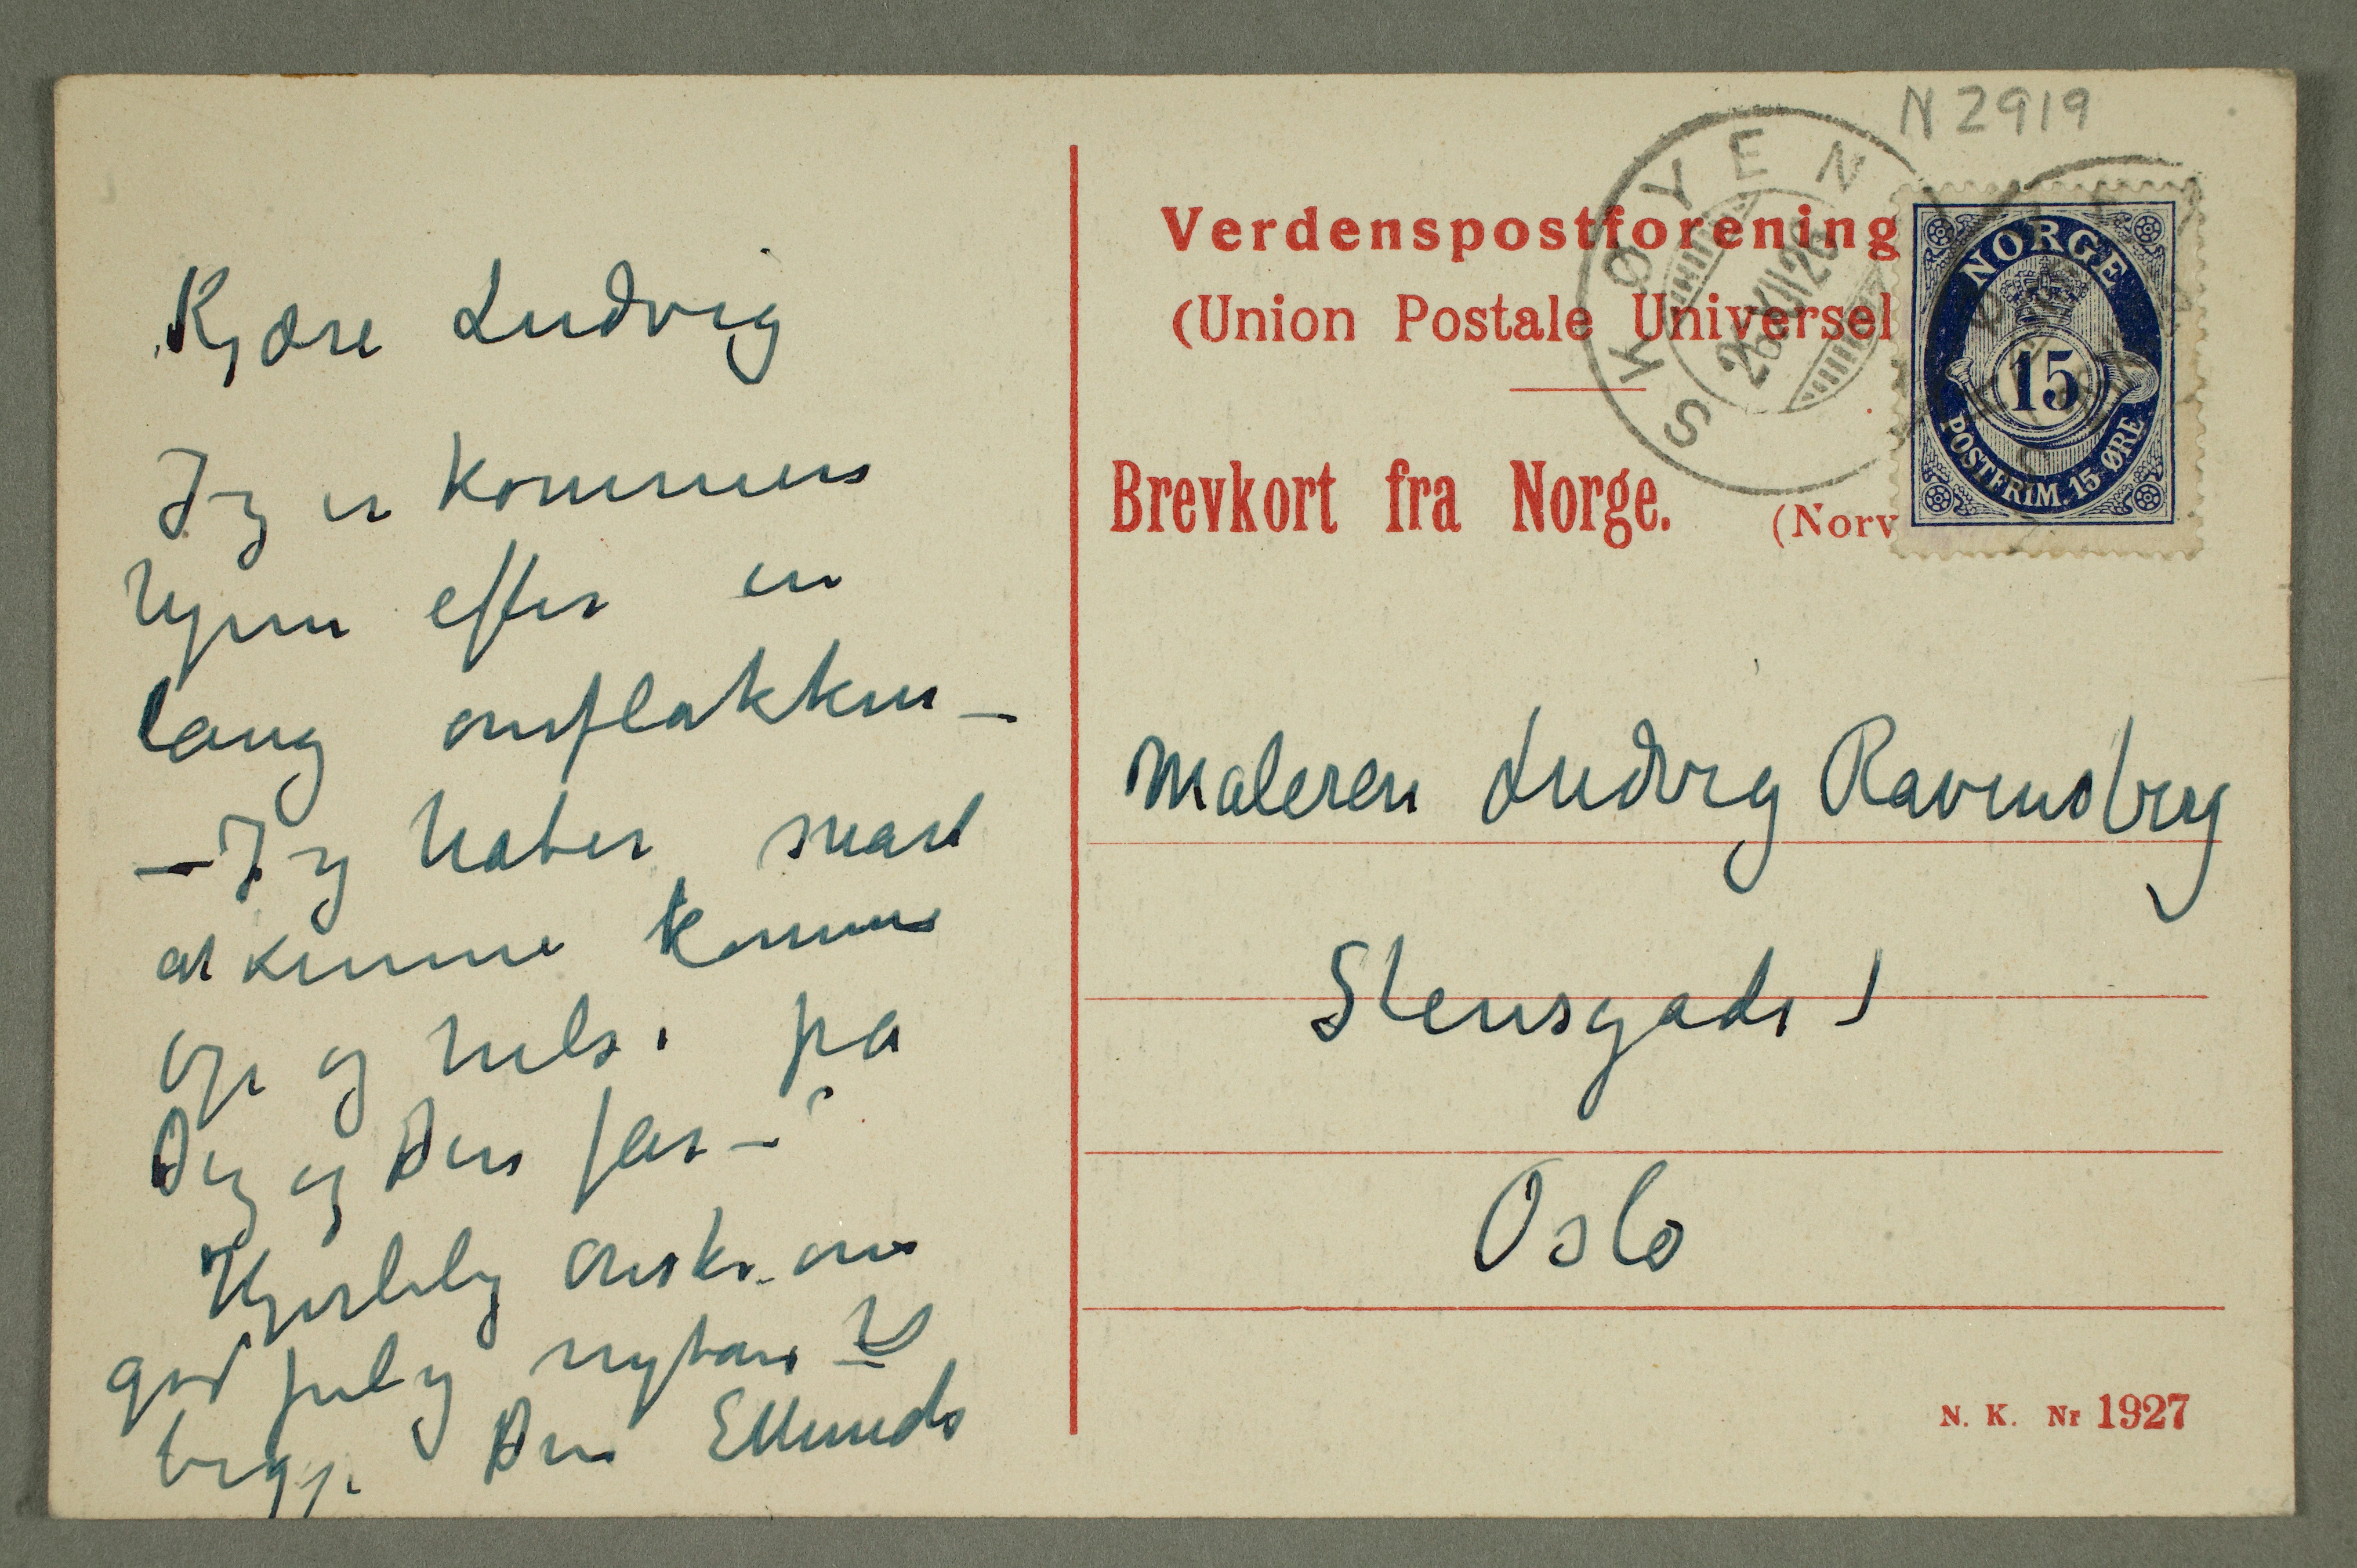 Kjære Ludvig
Jeg er kommen
hjem efter en
lang omflakken –
– Jeg håber snart
at kunne komme
op og hilse på
Dig og Din far –
Hjertelig ønske om
god jul og nytår til
begge Din EMunch
N 2919
SKØYEN
26 XII 26
Verdenspostforening
(Union Postale Universel
NORGE
15
POSTFRIM. 15 ØRE
Brevkort fra Norge. (Norv
Maleren Ludvig Ravensberg
Stensgade 1
Oslo
N. K. Nr 1927